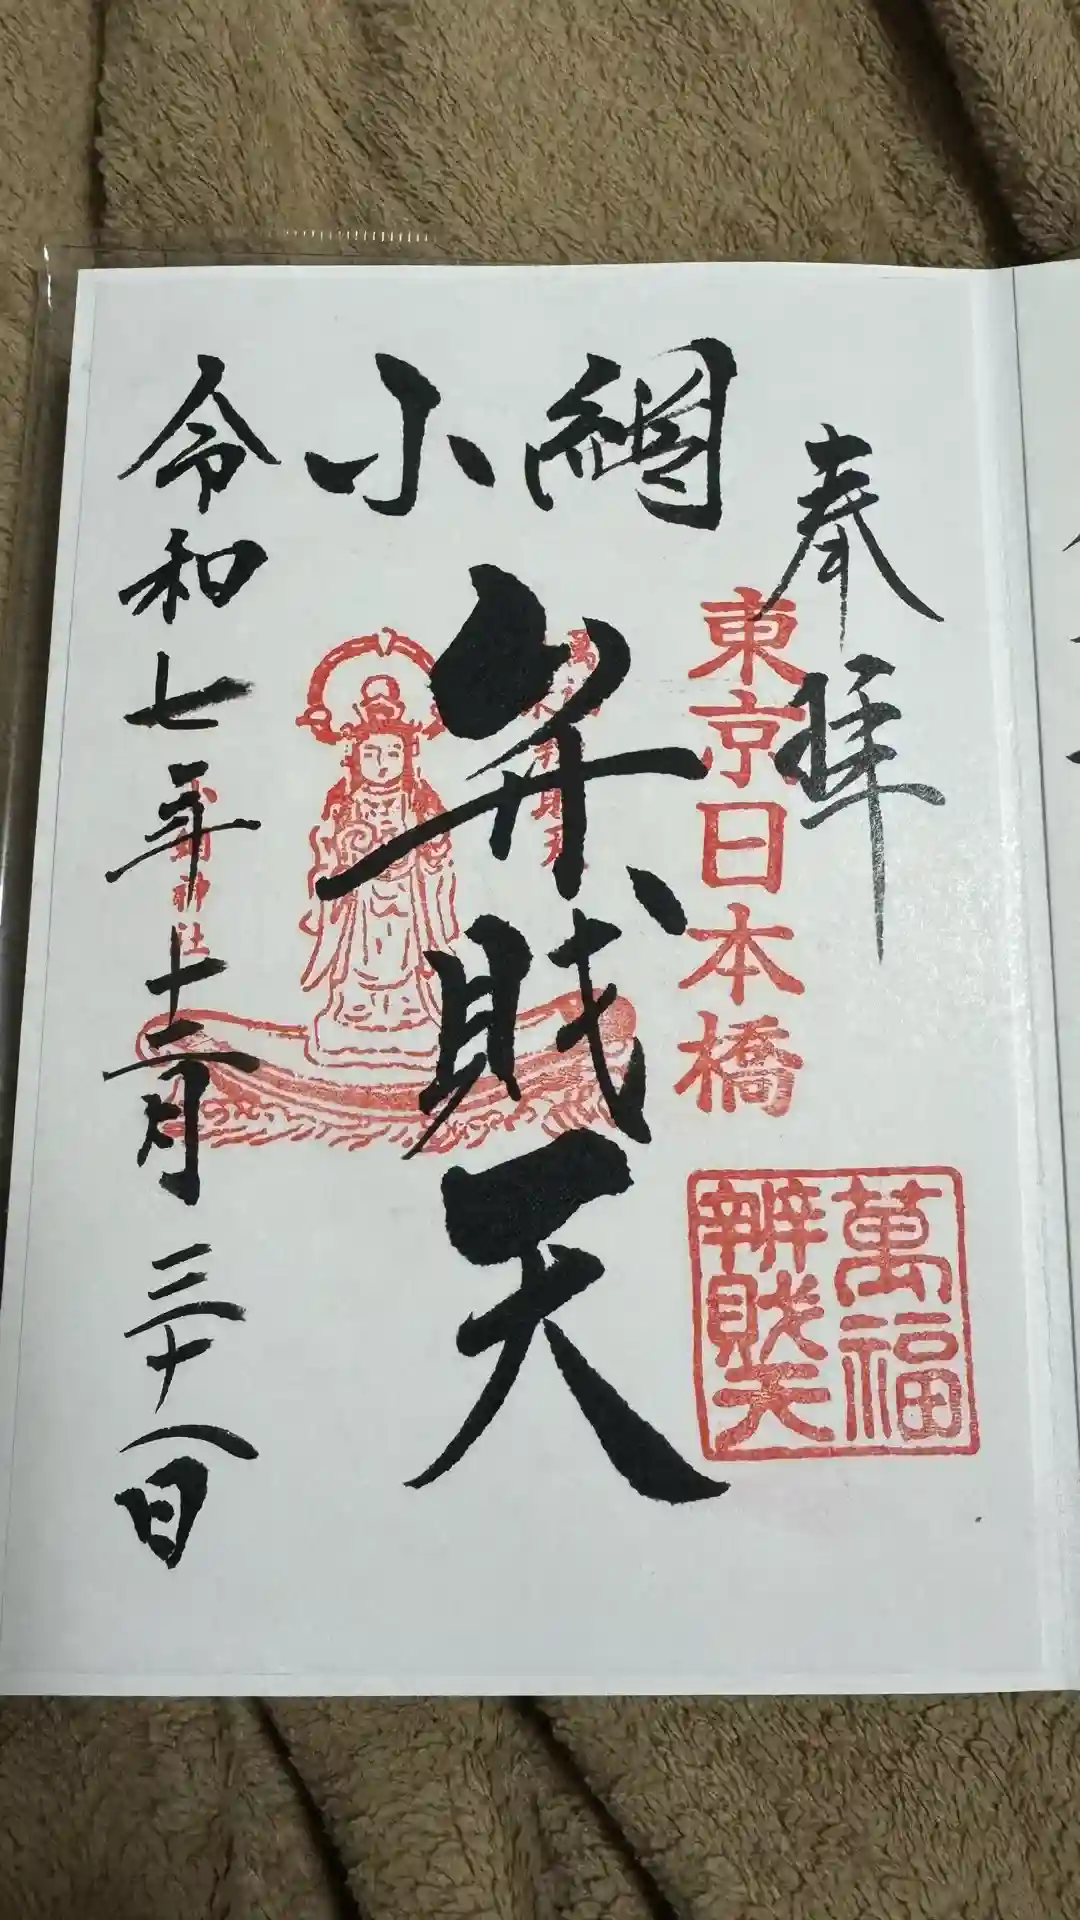 奉拝
東京日本橋
萬福
辨財天
小網
弁財天
小網神社
令和七年十二月三十八日